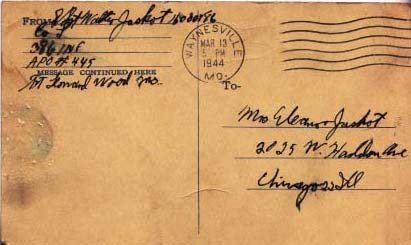 FROM S/Sgt Walter Jackot 16000186
Co
386 INF
APO # 445
MESSAGE CONTINUED HERE
Ft Leonard Wood Mo.
WAYNESVILLE
MAR 13
5 PM
1944
MO.
To-
Mrs Eleanor Jackot
2025 W. Haddon Ave
Chicago 22 Ill